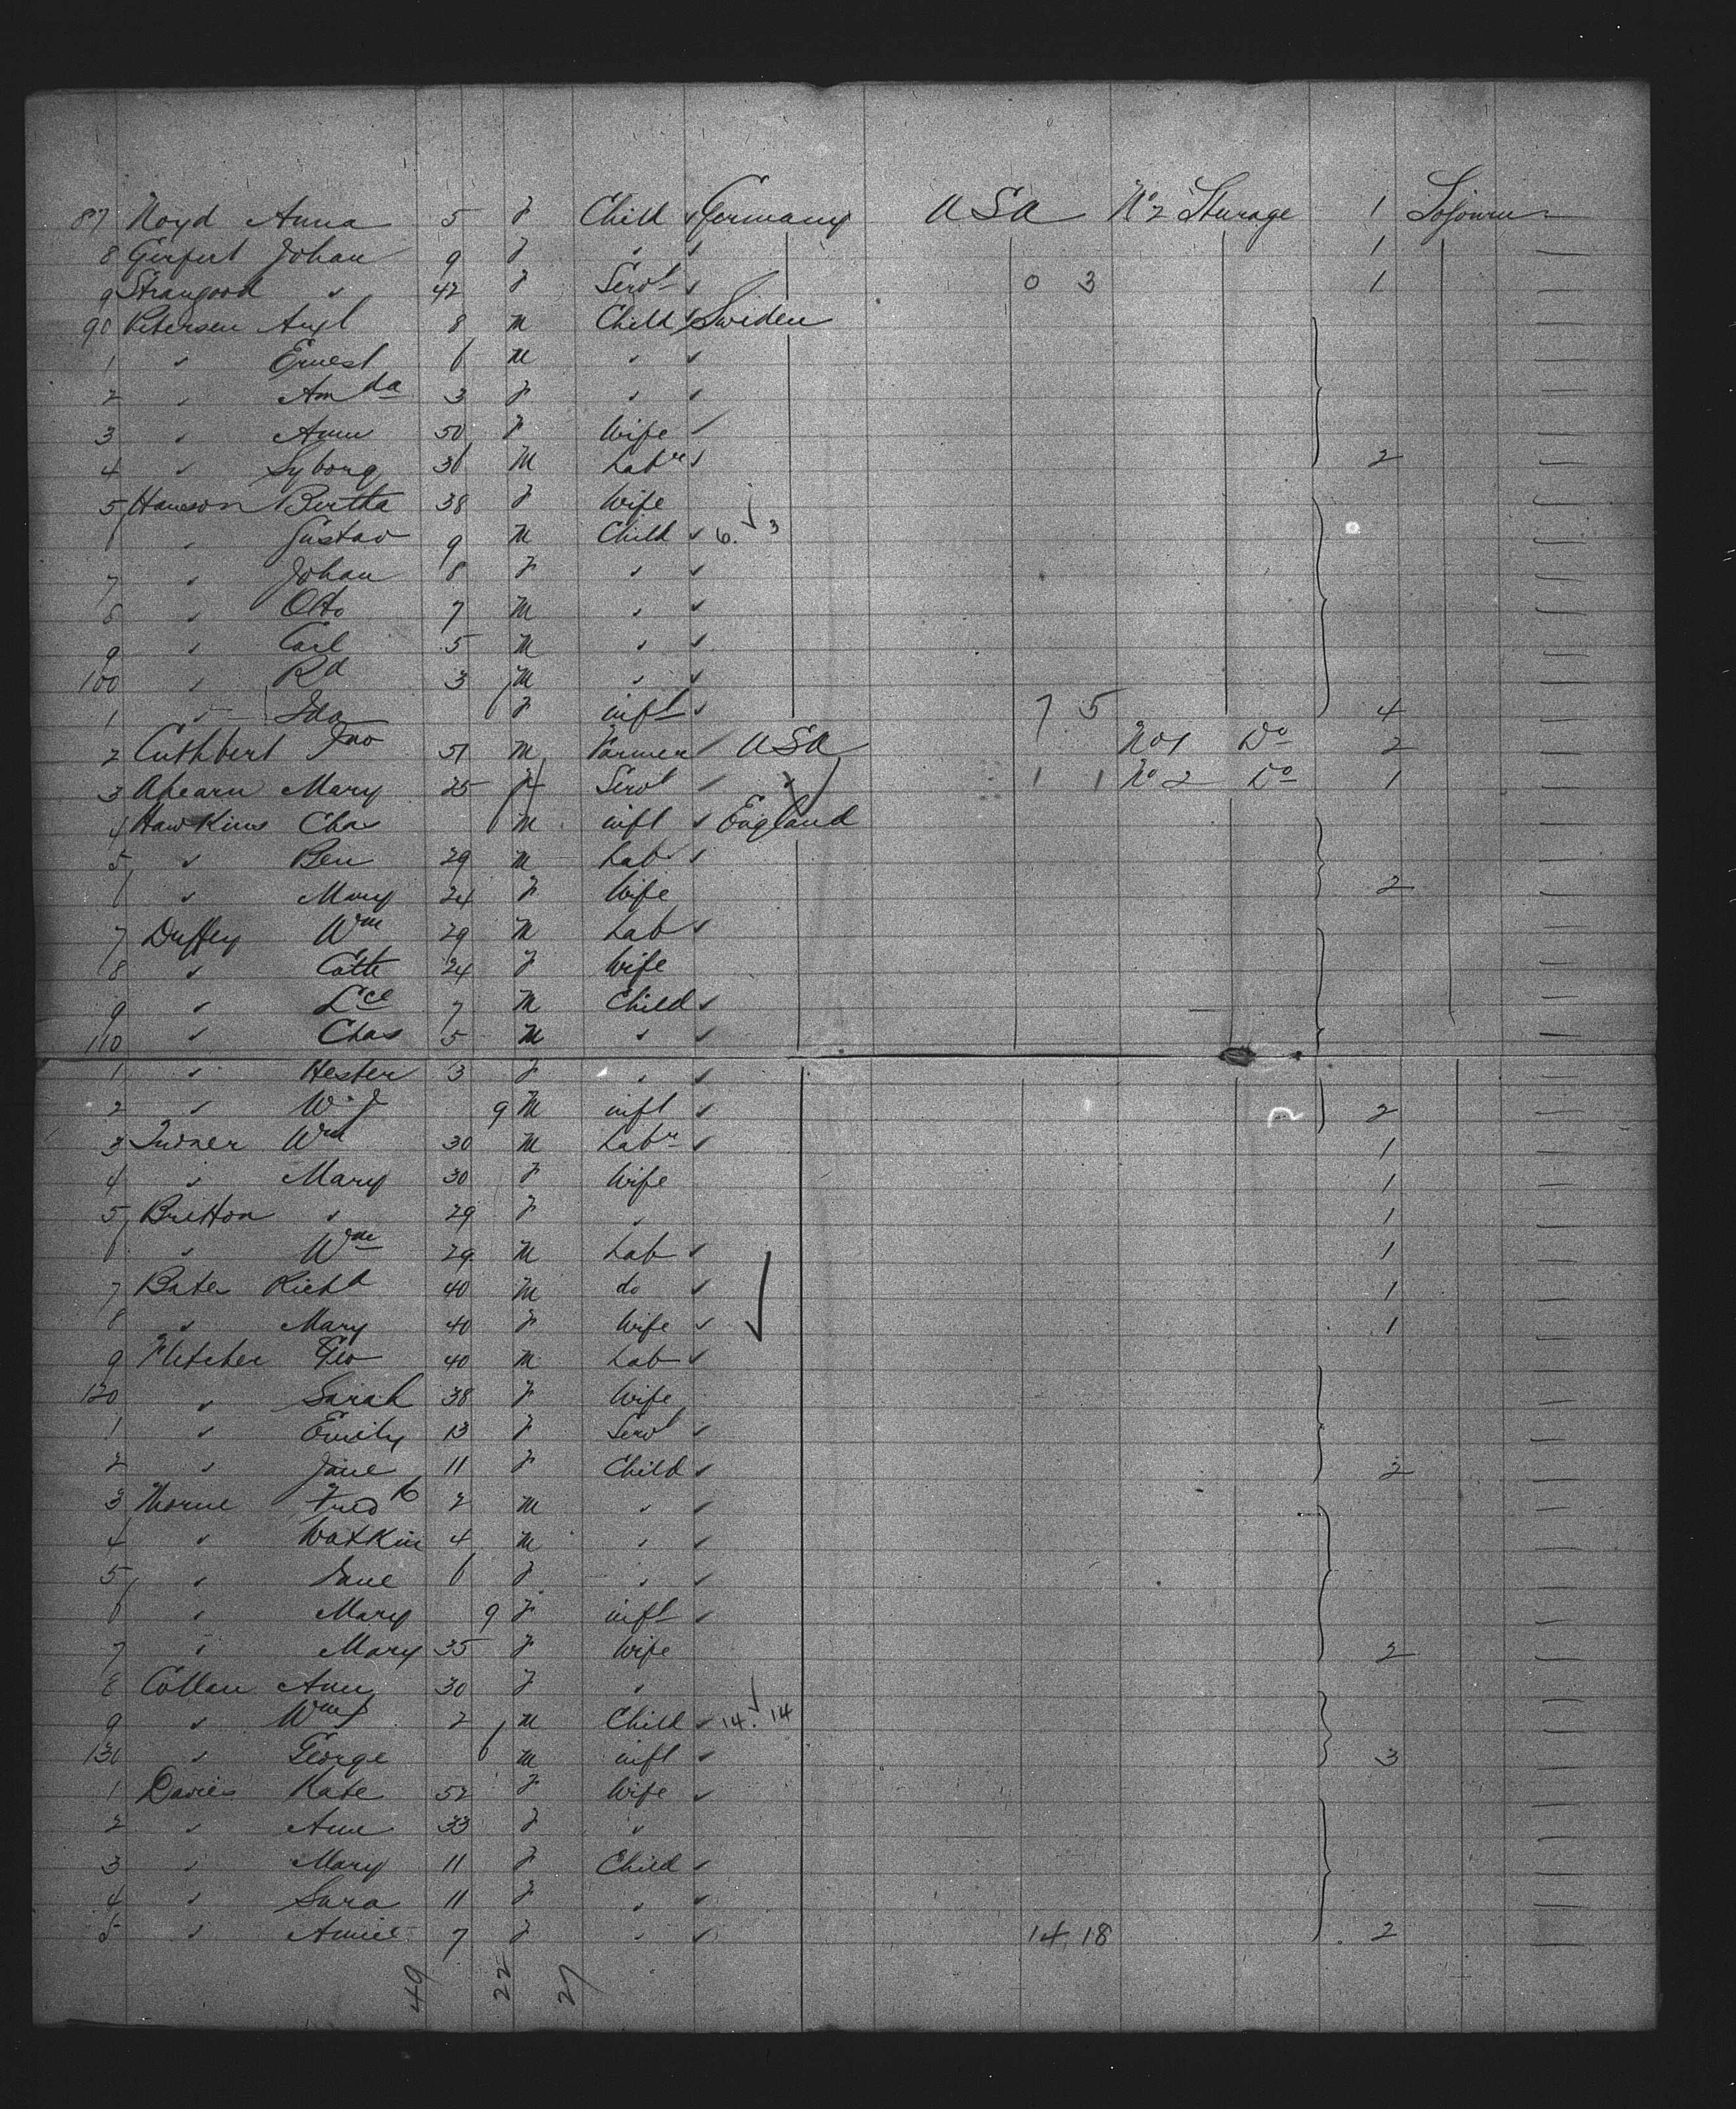 87 Noyd Anna 5 F Child Germany USA No 2 Sturage 1 Sojourn
8 Gerfert Johan 9 F " " 1 —
9 Strangood " 42 F Servt " 0 3 1 —
90 Petersen Axl 8 M Child Sweden —
1 " Ernest 6 M " " —
2 " Amda 3 F " " —
3 " Ann 50 F Wife —
4 " Syborg 36 M Labr 2 —
5 Hanson Bertha 38 F Wife —
6 " Gustav 9 M Child 6. 3 —
7 " Johan 8 F " " —
8 " Otto 7 M " " —
9 " Carl 5 M " " —
100 " Rd 3 M " " —
1 " Ida 6 F inft " 7 5 4 —
2 Cuthbert Jno 51 M Farmer USA No 1 Do 2 —
3 Ahearn Mary 25 F Servt " 1 1 No 2 Do 1 —
4 Hawkins Chas 6 M inft England —
5 " Ben 29 M Lab —
6 " Mary 24 F Wife 2 —
7 Duffey Wm 29 M Lab —
8 " Cath 24 F Wife —
9 " Lce 7 M Child —
110 " Chas 5 M " " —
1 " Hester 3 F " " —
2 " W J 9 M inft 2 —
3 Turner Wm 30 M Labr 1 —
4 " Mary 30 F Wife 1 —
5 Britton " 29 F " 1 —
6 " Wm 29 M Lab 1 —
7 Bater Richd 40 M do 1 —
8 " Mary 40 F Wife 1 —
9 Fletcher Geo 40 M Lab —
120 " Sarah 38 F Wife —
1 " Emily 13 F Servt —
2 " Jane 11 F Child 2 —
3 Thorne Fredk 2 M " " —
4 " Watkin 4 M " " —
5 " Jane 6 F " " —
6 " Mary 9 F inft —
7 " Mary 35 F Wife 2 —
8 Collan Ann 30 F " —
9 " Wm 2 M Child 14. 14 —
130 " George 6 M inft 3 —
1 Davies Kate 52 F Wife —
2 " Ann 33 F " —
3 " Mary 11 F Child —
4 " Sara 11 F " " —
5 " Annie 7 F " " 14 18 2 —
49 22 27